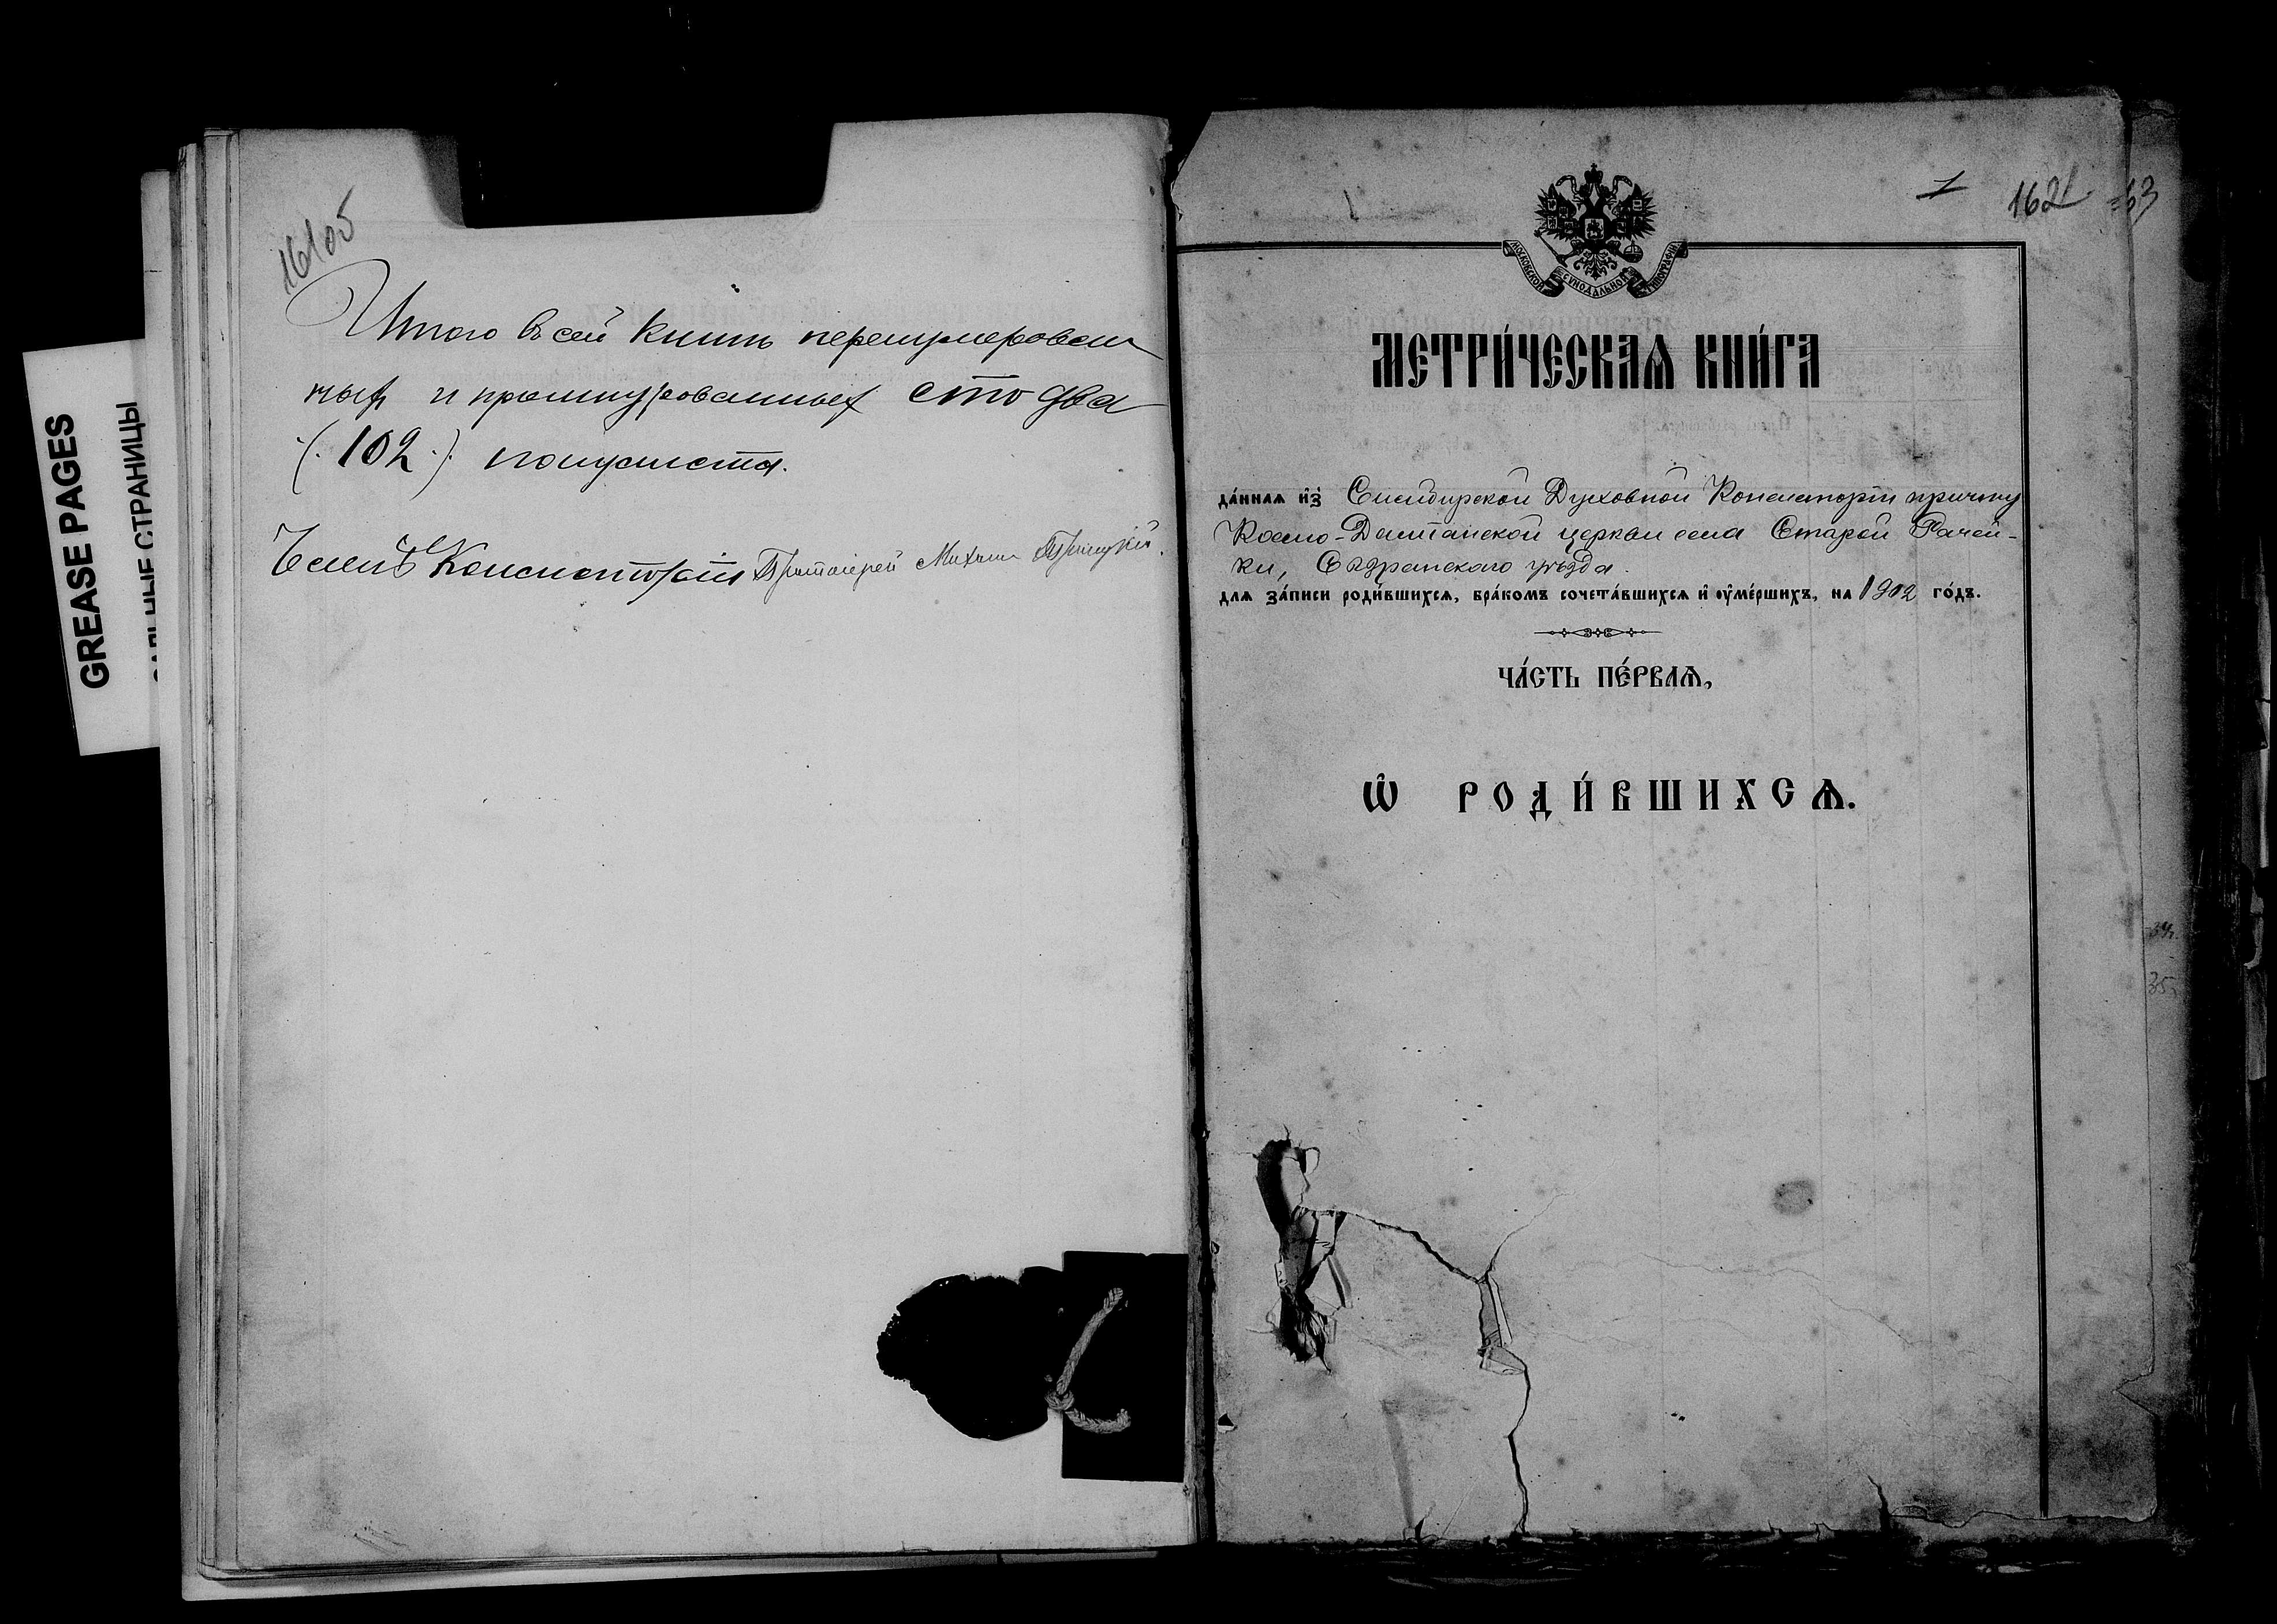 GREASE PAGES
СТРАНИЦЫ
16105
Итого въ сей книгѣ перенумерован
ныхъ и прошнурованныхъ сто два
(102) полулиста.
Членъ Консисторіи Протоіерей Михаилъ
1
162
63
МОСКОВСКОЙ СѴНОДАЛЬНОЙ ТИПОГРАФІИ
МЕТРИ́ЧЕСКАѦ КНИ́ГА
да́ннаѧ и҆зъ Симбирской Духовной Консисторіи причту
Космо-Даміанской церкви села Старой Рачей-
ки, Сызранскаго уѣзда.
длѧ за́писи роди́вшихсѧ, бра́комъ сочета́вшихсѧ и҆ ᲂу҆ме́ршихъ, на 1902 го́дъ.
ЧА́СТЬ ПЕ́РВАѦ,
Ѡ҆ РОДИ́ВШИХСѦ.
35